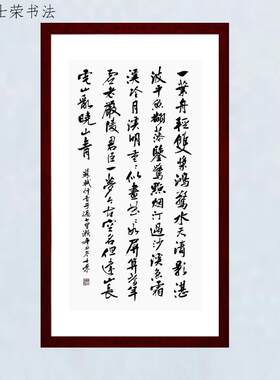 士荣书法
一葉舟輕雙槳鴻驚水天清影湛
波平魚翻藻鑒鷺點烟汀過沙溪急霜
溪冷月溪明重重似畫曲曲如屏算當年
虛老嚴陵君臣一夢今古空名但遠山長
雲山亂曉山青
蘇軾行香子過七里瀨